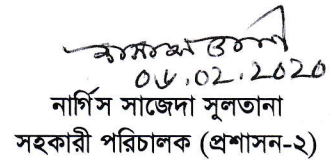 ০৬.০২.2020
নার্গিস সাজেদা সুলতানা
সহকারী পরিচালক (প্রশাসন-২)